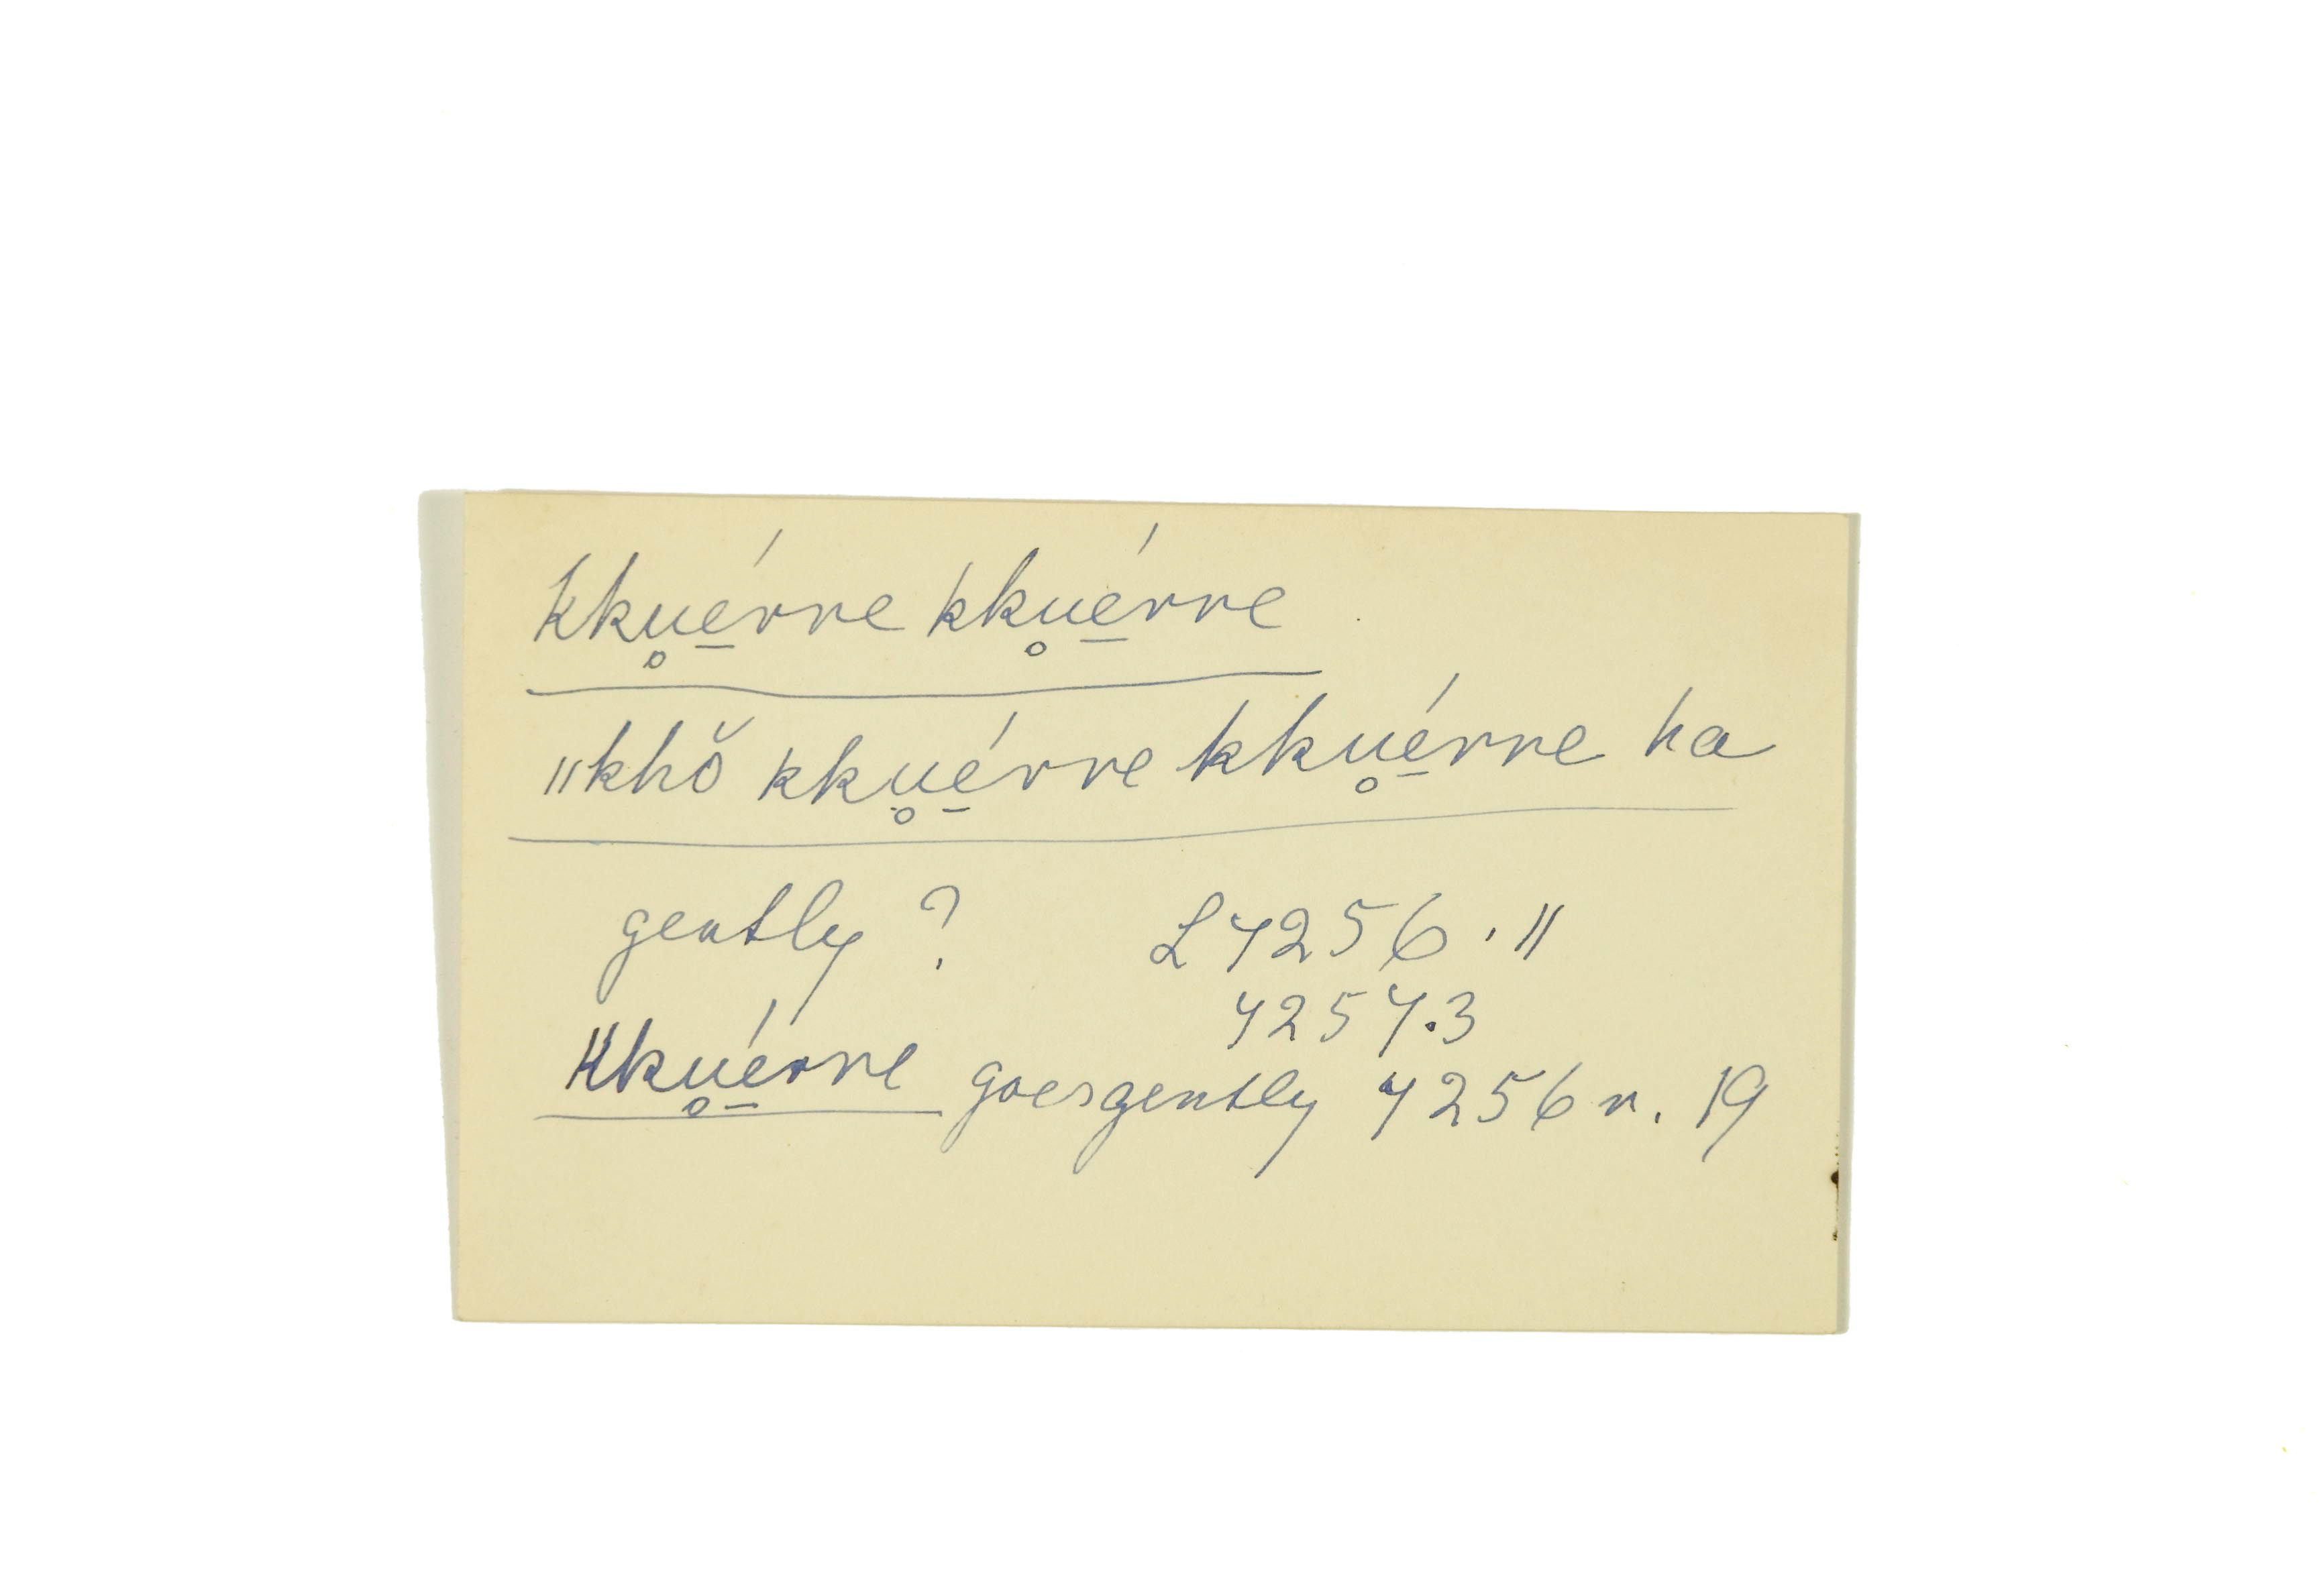 Kku̥é̱rre kku̥é̱rre
ǁkhŏ kku̥é̱rre kku̥é̱rre ha
gently ? L 4256 . 11
4257.3
Kku̥é̱rre goes gently 4256 r. 19